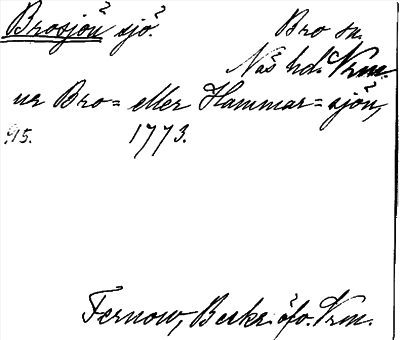 Brosjön sjö Bro sn.
Näs hd. Vrm.
ur Bro= eller Hammar=sjön,
95. 1773.
Fernow, Beskr. öfv. Vrm.